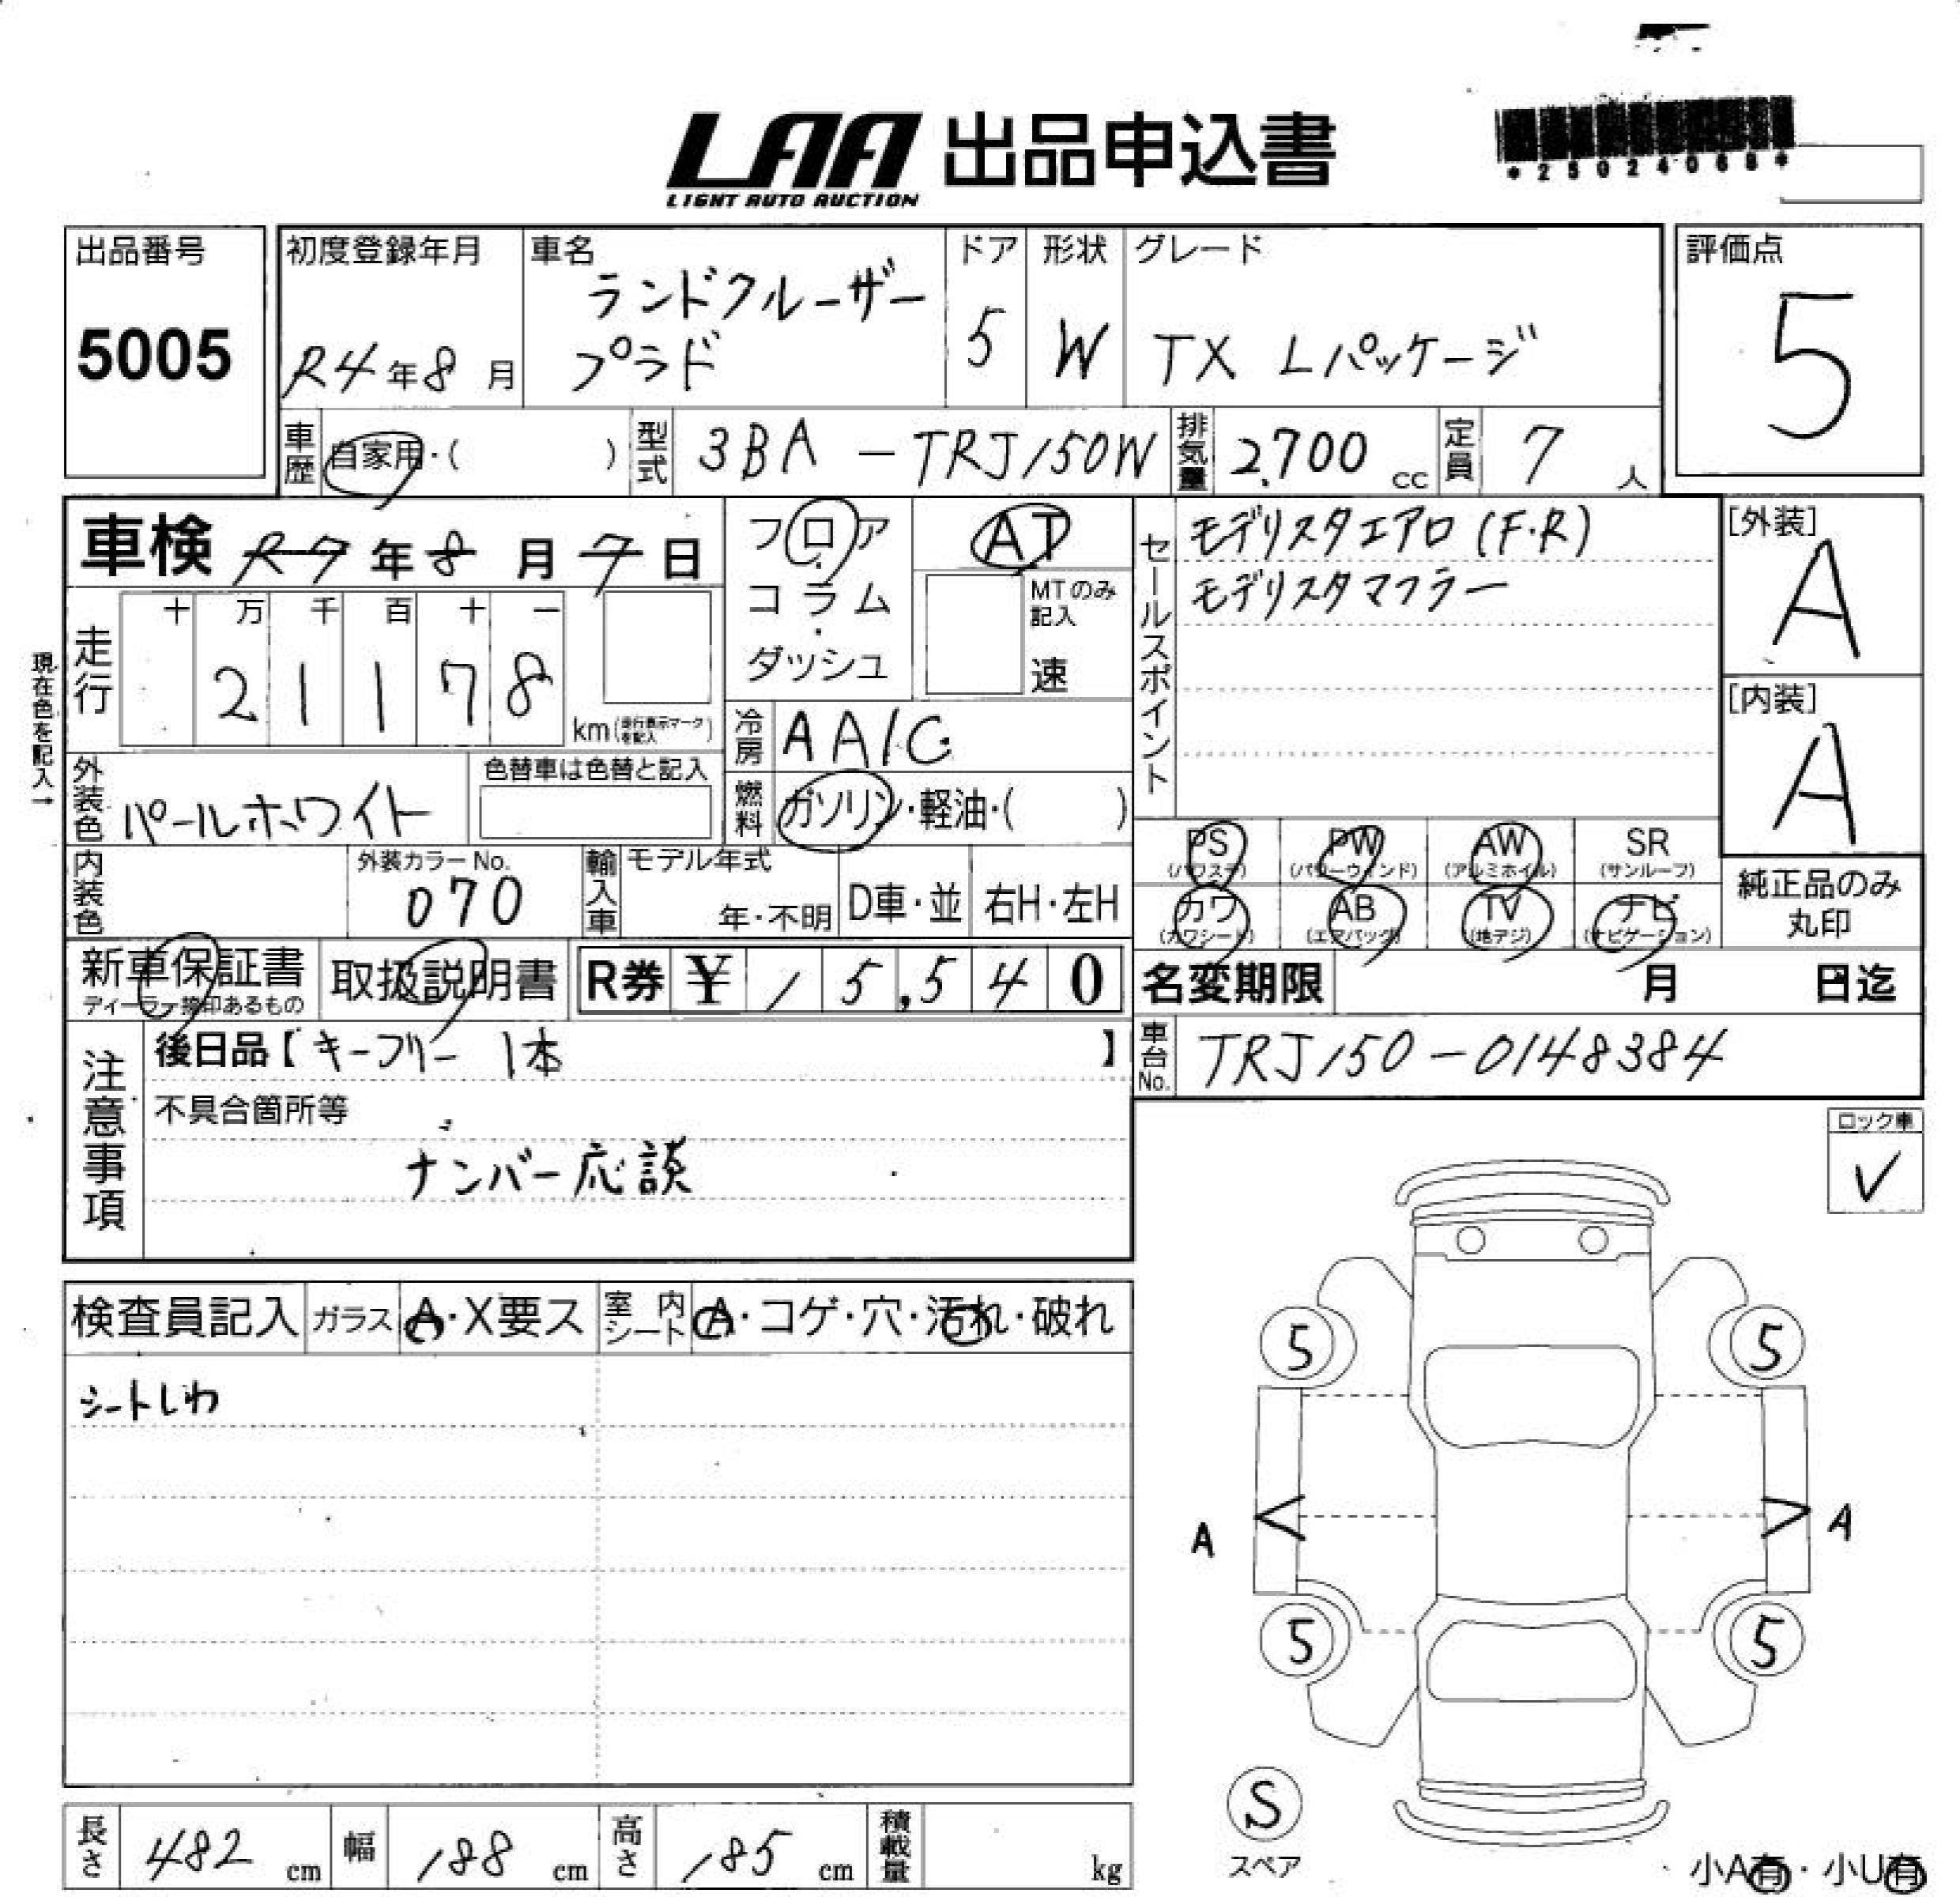 LAA 出品申込書
LIGHT AUTO AUCTION
*25024068*
出品番号
5005
初度登録年月
R4年8月
車名
ランドクルーザー
プラド
ドア
5
形状
W
グレード
TX Lパッケージ
評価点
5
車歴 自家用・( )
型式 3BA-TRJ150W
排気量 2,700 cc
定員 7 人
車検 R7年8月7日
フロア・コラム・ダッシュ
AT
MTのみ記入
速
セールスポイント
モデリスタエアロ (F・R)
モデリスタマフラー
[外装]
A
[内装]
A
現在色を記入→
走行
十 万 千 百 十 一
2 1 1 7 8
km(走行表示マークを記入)
冷房 AA/C
外装色 パールホワイト
色替車は色替と記入
燃料 ガソリン・軽油・( )
PS (パワステ)
PW (パワーウインド)
AW (アルミホイル)
SR (サンルーフ)
カワ (カワシート)
AB (エアバッグ)
TV (地デジ)
ナビ (ナビゲーション)
純正品のみ
丸印
内装色
外装カラーNo.
070
輸入車
モデル年式
年・不明
D車・並
右H・左H
新車保証書
ディーラー捺印あるもの
取扱説明書
R券 ¥ 15,540
名変期限 月 日迄
注意事項
後日品【キーフリー 1本】
車台No. TRJ150-0148384
不具合箇所等
ナンバー応談
ロック車
✓
検査員記入
ガラス A・X要ス
室内シート A・コゲ・穴・汚れ・破れ
シートしわ
5 5
A A
5 5
S
スペア
長さ 482 cm
幅 188 cm
高さ 185 cm
積載量 kg
小A有・小U有